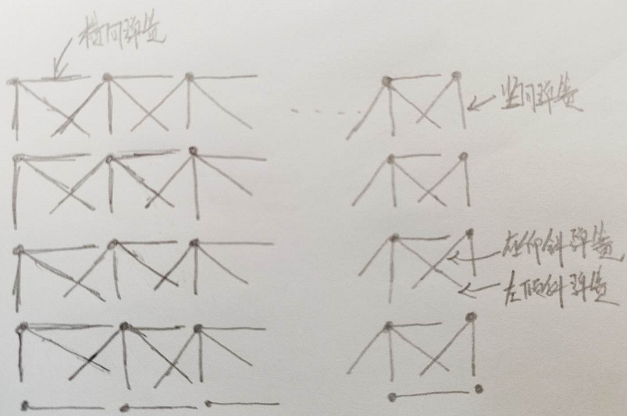 横向弹簧
竖向弹簧
左仰斜弹簧
左俯斜弹簧